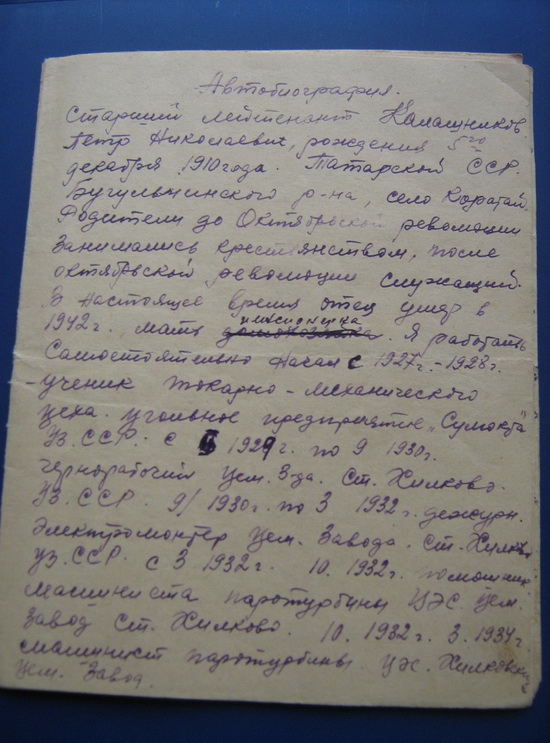 Автобиография.
Старший лейтенант Калашников
Пётр Николаевич, рождения 5го
декабря 1910 года. Татарской ССР.
Бугульминского р-на, село Каратай.
Родители до Октябрьской революции
занимались крестьянством, после
октябрьской революции служащий.
В настоящее время отец умер в
пенсионерка
1942 г. мать домохозяйка. Я работать
самостоятельно начал с 1927 г. - 1928 г.
- ученик токарно - механического
цеха. угольное предприятие „Сулюкта"
Уз. ССР. с 1929 г. по 9 1930 г.
чернорабочий цем. з-да. Ст. Хилково.
Уз. ССР. 9/ 1930 г. по 3 1932 г. дежурн.
электромонтер Цем. Завода. Ст. Хилково
Уз. ССР. с 3 1932 г. 10. 1932 г. помошник
машиниста паротурбины ЦЭС. Цем.
Завод Ст. Хилково. 10. 1932 г. 3. 1934 г.
машинист паротурбины ЦЭС.
Цем. Завод.